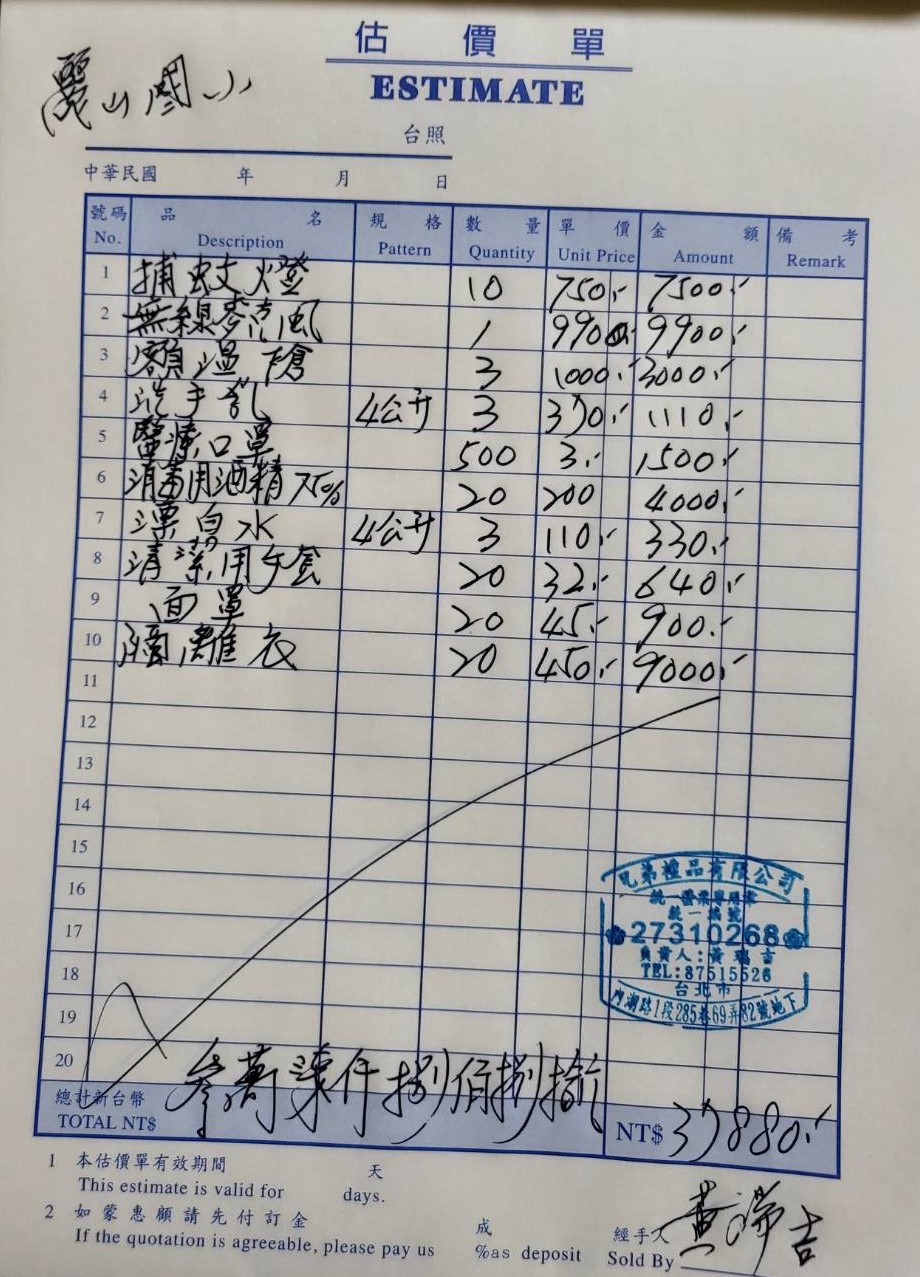 估價單
ESTIMATE
麗山國小
台照
中華民國 年 月 日
號碼 品名 規格 數量 單價 金額 備考
No. Description Pattern Quantity Unit Price Amount Remark
1 捕蚊燈 10 750.- 7500.-
2 無線麥克風 1 9900.- 9900.-
3 額溫槍 3 1000.- 3000.-
4 洗手乳 4公升 3 370.- 1110.-
5 醫療口罩 500 3.- 1500.-
6 消毒用酒精75% 20 200 4000.-
7 漂白水 4公升 3 110.- 330.-
8 清潔用手套 20 32.- 640.-
9 面罩 20 45.- 900.-
10 隔離衣 20 450.- 9000.-
11
12
13
14
15
16
17
18
19
20
兄弟禮品有限公司
統一發票專用章
統一編號
27310268
負責人:黃瑞吉
TEL:87515526
台北市
內湖路1段285巷69弄82號地下
總計新台幣 參萬柒仟捌佰捌拾元
TOTAL NT$ NT$ 37880.-
1 本估價單有效期間 天
This estimate is valid for days.
2 如蒙惠顧請先付訂金 成 經手人
If the quotation is agreeable, please pay us %as deposit Sold By